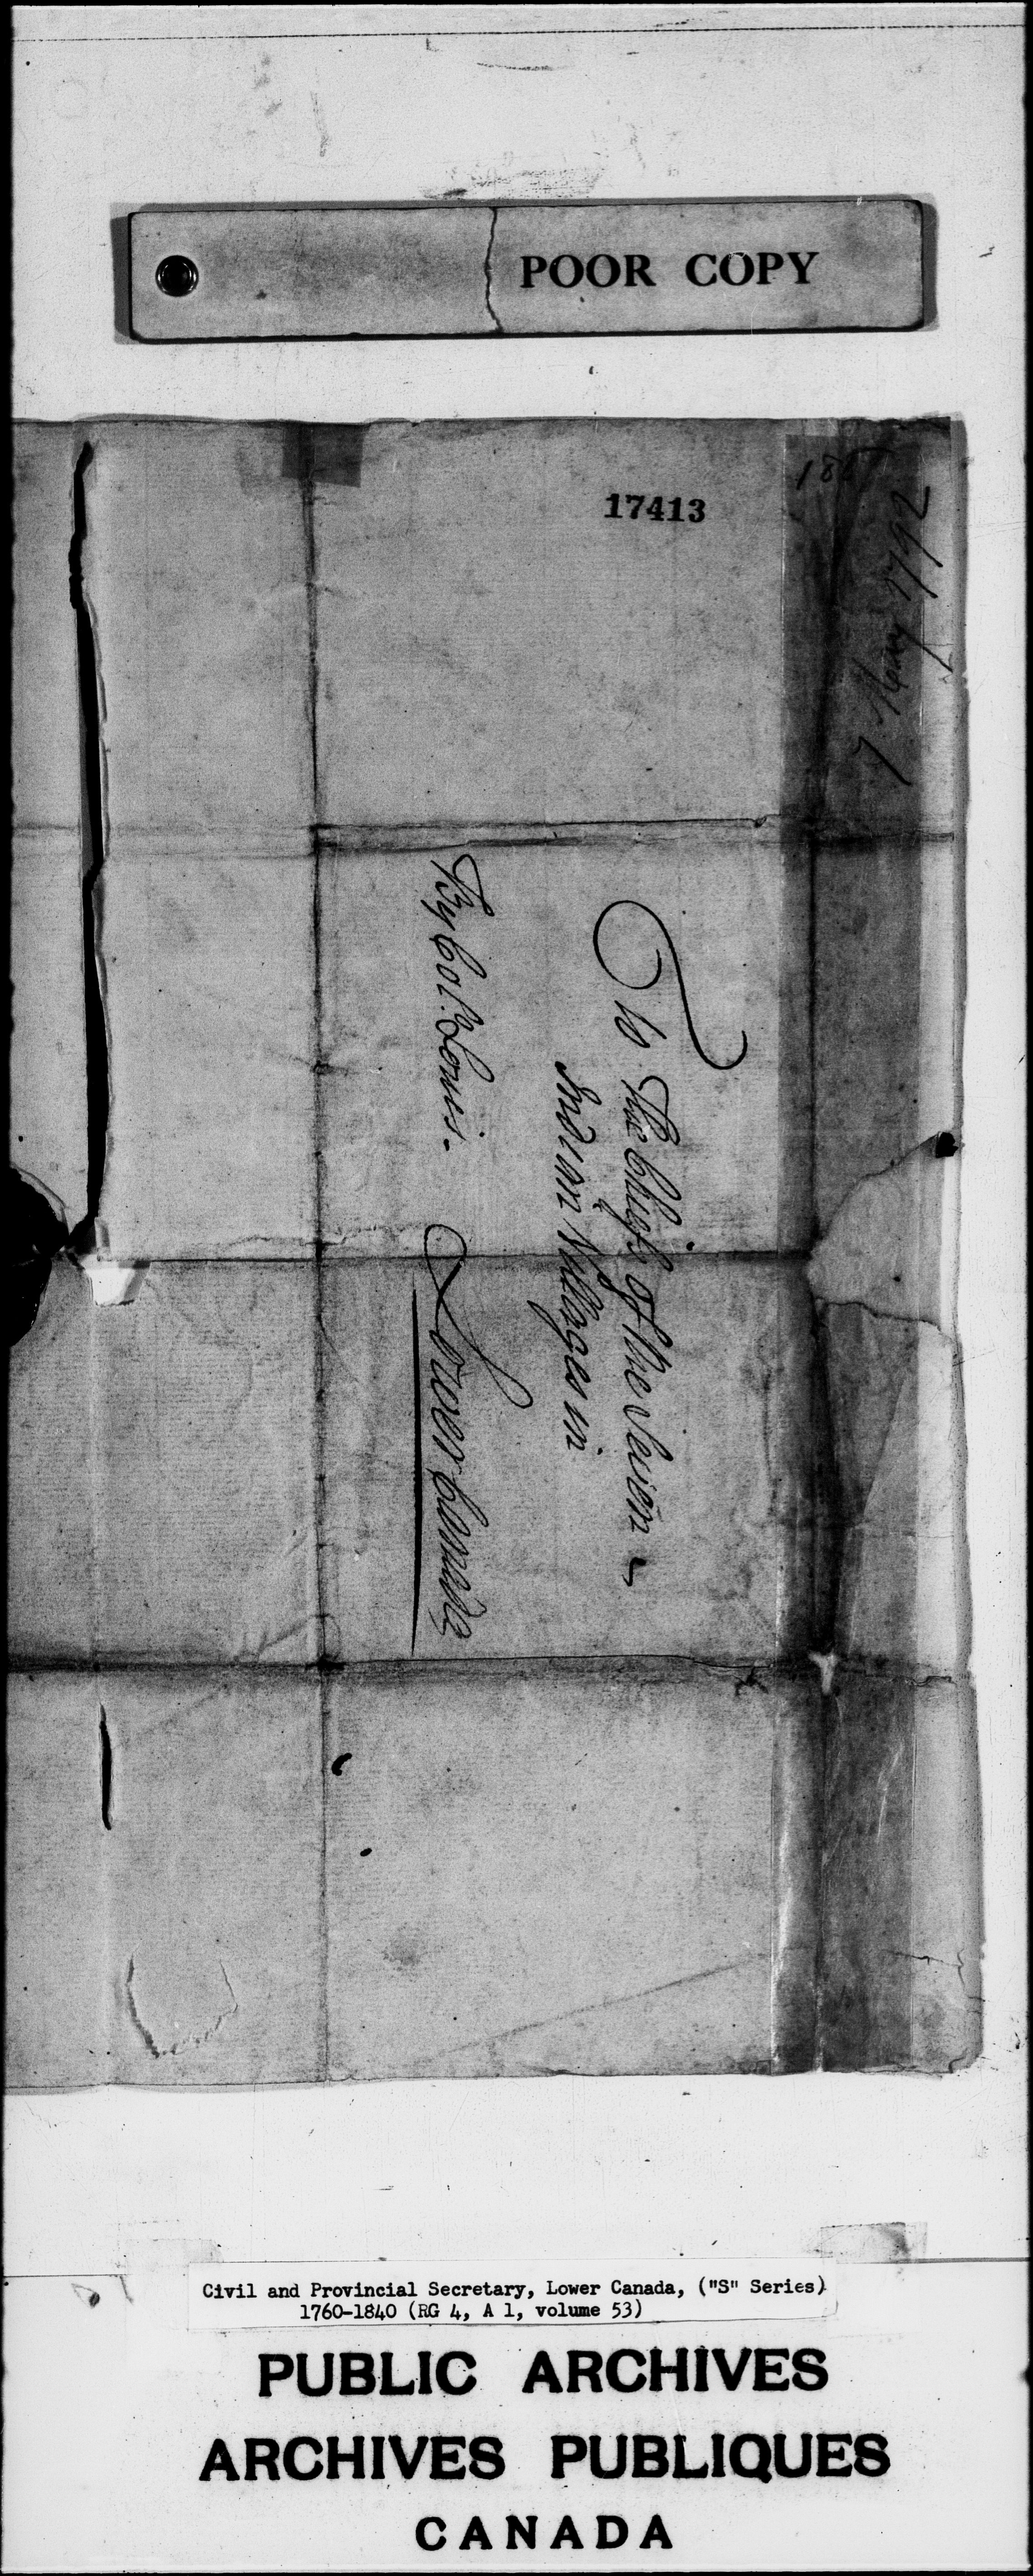 POOR COPY
17413
7 May 1792
To The Chiefs of the Seven
Indian Villages in
Lower Canada
By Col. Louis.
Civil and Provincial Secretary, Lower Canada, ("S" Series)
1760-1840 (RG 4, A 1, volume 53)
PUBLIC ARCHIVES
ARCHIVES PUBLIQUES
CANADA